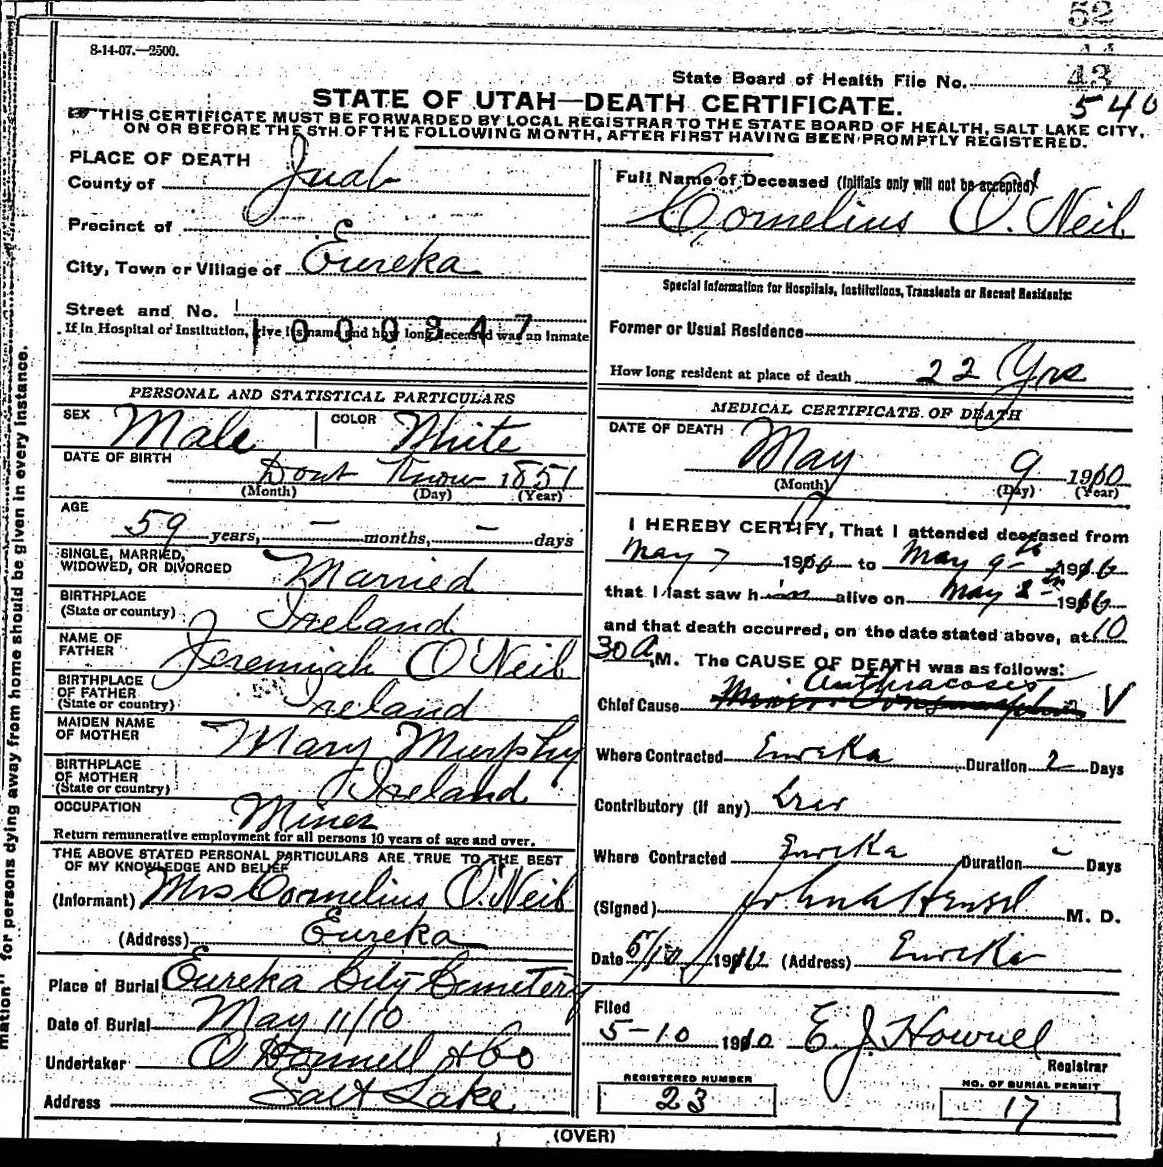 52
43
8-14-07.—2500.
State Board of Health File No. 540
STATE OF UTAH—DEATH CERTIFICATE.
THIS CERTIFICATE MUST BE FORWARDED BY LOCAL REGISTRAR TO THE STATE BOARD OF HEALTH, SALT LAKE CITY,
ON OR BEFORE THE 5TH OF THE FOLLOWING MONTH, AFTER FIRST HAVING BEEN PROMPTLY REGISTERED.
PLACE OF DEATH
County of Juab
Precinct of
City, Town or Village of Eureka
Street and No.
If in Hospital or Institution, give its name and how long deceased was an Inmate
1000847
PERSONAL AND STATISTICAL PARTICULARS
SEX Male
COLOR White
DATE OF BIRTH Dont Know 1851
(Month) (Day) (Year)
AGE
59 years, — months, — days
SINGLE, MARRIED,
WIDOWED, OR DIVORCED Married
BIRTHPLACE
(State or country) Ireland
NAME OF
FATHER Jeremiah O'Neil
BIRTHPLACE
OF FATHER
(State or country) Ireland
MAIDEN NAME
OF MOTHER Mary Murphy
BIRTHPLACE
OF MOTHER
(State or country) Ireland
OCCUPATION Miner
Return remunerative employment for all persons 10 years of age and over.
THE ABOVE STATED PERSONAL PARTICULARS ARE TRUE TO THE BEST
OF MY KNOWLEDGE AND BELIEF
(Informant) Mrs Cornelius O'Neil
(Address) Eureka
Place of Burial Eureka City Cemetery
Date of Burial May 11/10
Undertaker O Donnell & Co
Address Salt Lake
Full Name of Deceased (Initials only will not be accepted)
Cornelius O'Neil
Special Information for Hospitals, Institutions, Transients or Recent Residents:
Former or Usual Residence
How long resident at place of death 22 Yrs
MEDICAL CERTIFICATE OF DEATH
DATE OF DEATH
May 9 1910
(Month) (Day) (Year)
I HEREBY CERTIFY, That I attended deceased from
May 7 1910 to May 9th 1910
that I last saw him alive on May 8th 1910
and that death occurred, on the date stated above, at 10
30 A.M. The CAUSE OF DEATH was as follows:
Anthracosis
Chief Cause
Where Contracted Eureka Duration 2 Days
Contributory (if any)
Where Contracted Eureka Duration - Days
(Signed) M. D.
Date 5/10 1910 (Address) Eureka
Filed
5-10 1910 E J Howell
Registrar
REGISTERED NUMBER
23
NO. OF BURIAL PERMIT
17
(OVER)
mation" for persons dying away from home should be given in every instance.